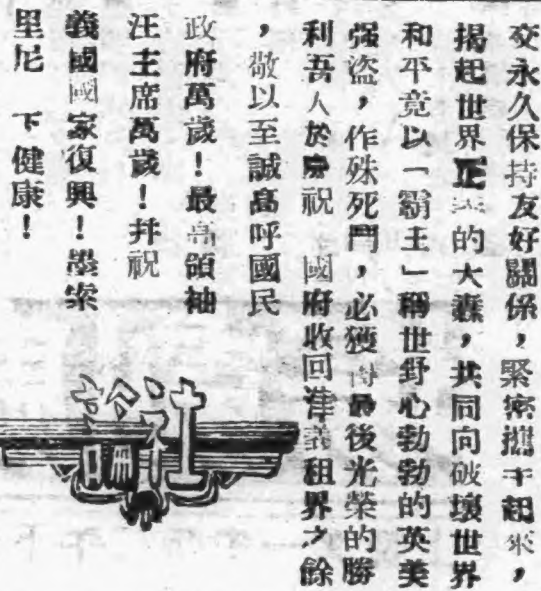 交永久保持友好關係，緊密攜手起來，
揭起世界正義的大纛，共同向破壞世界
和平竟以「霸主」稱世野心勃勃的英美
强盜，作殊死鬥，必獲得最後光榮的勝
利吾人於慶祝　國府收回津義租界之餘
，敬以至誠高呼國民
政府萬歲！最高領袖
汪主席萬歲！幷祝
義國國家復興！墨索
里尼　下健康！
社評